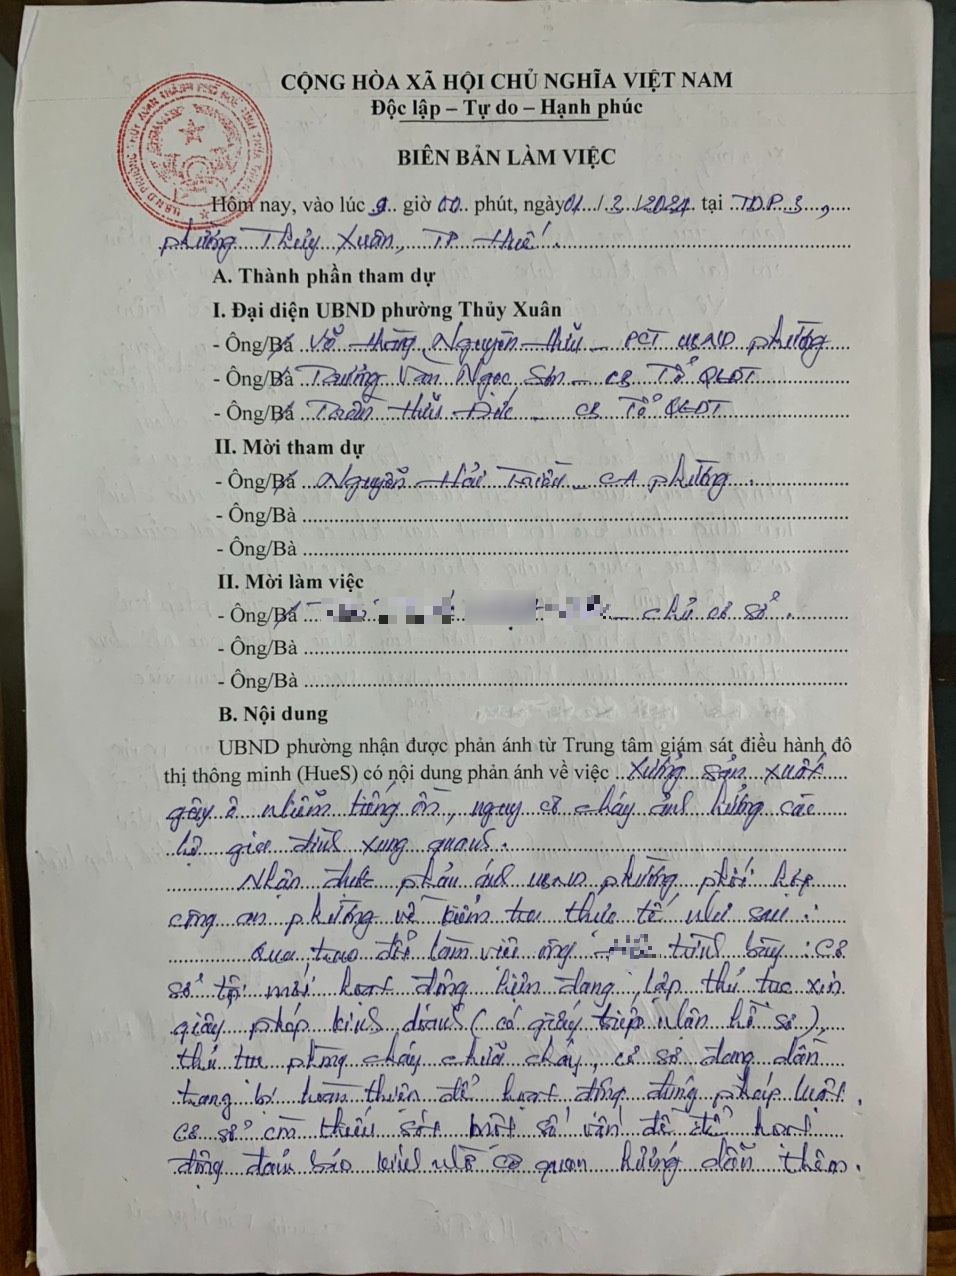 CỘNG HÒA XÃ HỘI CHỦ NGHĨA VIỆT NAM
Độc lập – Tự do – Hạnh phúc
BIÊN BẢN LÀM VIỆC
Hôm nay, vào lúc 9 giờ 00 phút, ngày 01/3/2021 tại TDP 3,
phường Thủy Xuân, TP Huế.
A. Thành phần tham dự
I. Đại diện UBND phường Thủy Xuân
- Ông/Bà Võ Hoàng Nguyên Hữu – PCT UBND phường
- Ông/Bà Trương Văn Ngọc Sơn – CB Tổ QLĐT
- Ông/Bà Trần Hữu Đức – CB Tổ QLĐT
II. Mời tham dự
- Ông/Bà Nguyễn Hải Triều – CA phường.
- Ông/Bà
- Ông/Bà
II. Mời làm việc
- Ông/Bà – chủ cơ sở.
- Ông/Bà
- Ông/Bà
B. Nội dung
UBND phường nhận được phản ánh từ Trung tâm giám sát điều hành đô
thị thông minh (HueS) có nội dung phản ánh về việc xưởng sản xuất
gây ô nhiễm tiếng ồn, nguy cơ cháy ảnh hưởng các
hộ gia đình xung quanh.
Nhận được phản ánh UBND phường phối hợp
công an phường về kiểm tra thực tế như sau:
Qua trao đổi làm việc ông trình bày: Cơ
sở mới hoạt động hiện đang lập thủ tục xin
giấy phép kinh doanh (có giấy tiếp nhận hồ sơ),
thủ tục phòng cháy chữa cháy, cơ sở đang dần
trang bị hoàn thiện để hoạt động đúng pháp luật.
Cơ sở còn thiếu sót một số vấn đề để hoạt
động đảm bảo kính nhờ cơ quan hướng dẫn thêm.